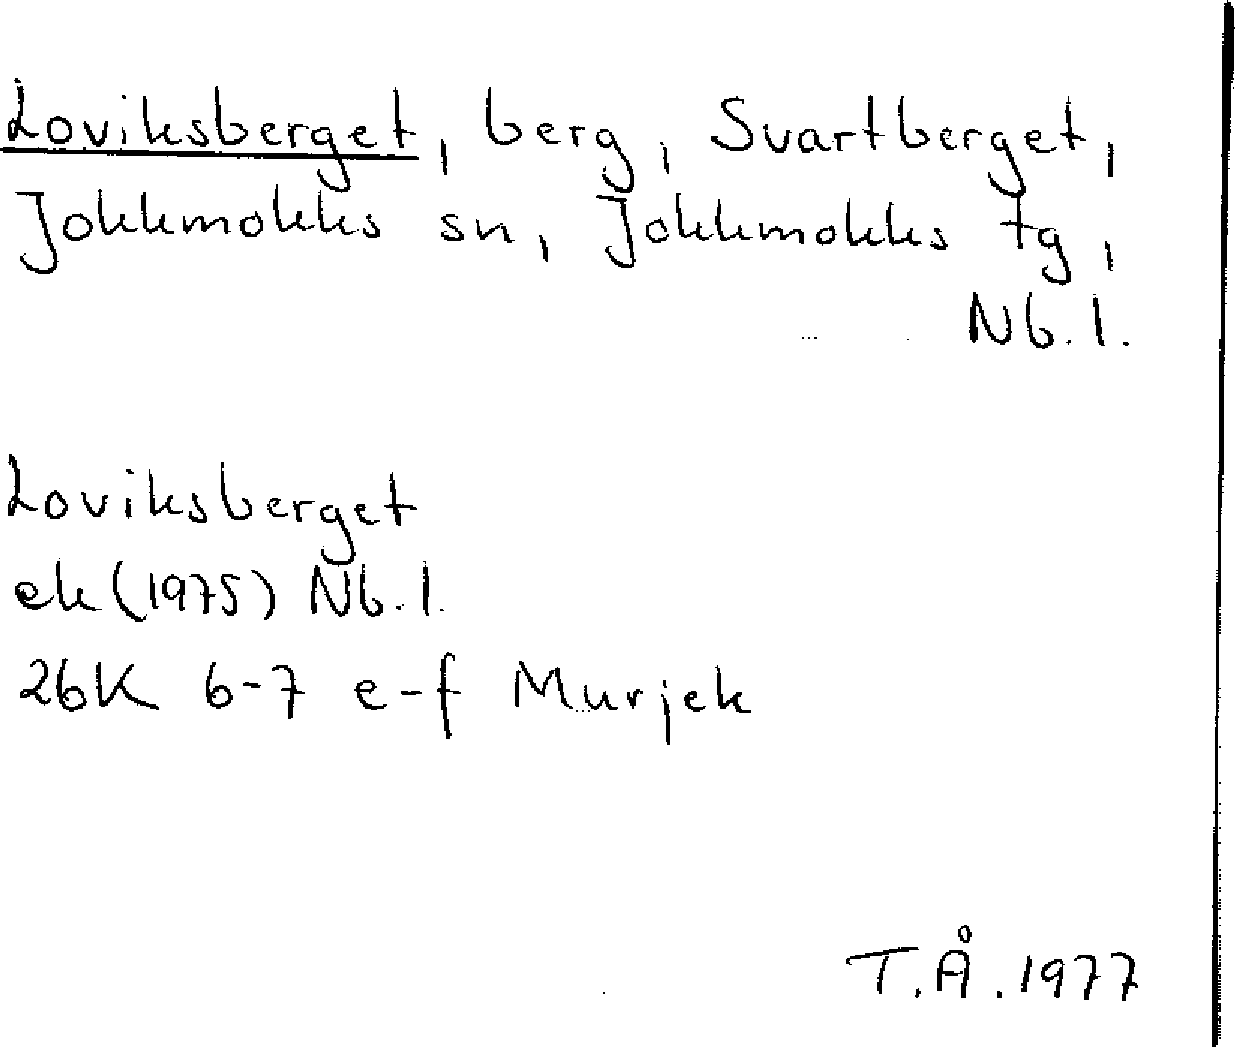 Loviksberget, berg, Svartberget,
Jokkmokks sn, Jokkmokks tg,
Nb.l.
Loviksberget
ek (1975) Nb.l.
26K 6-7 e-f Murjek
T.Å. 1977